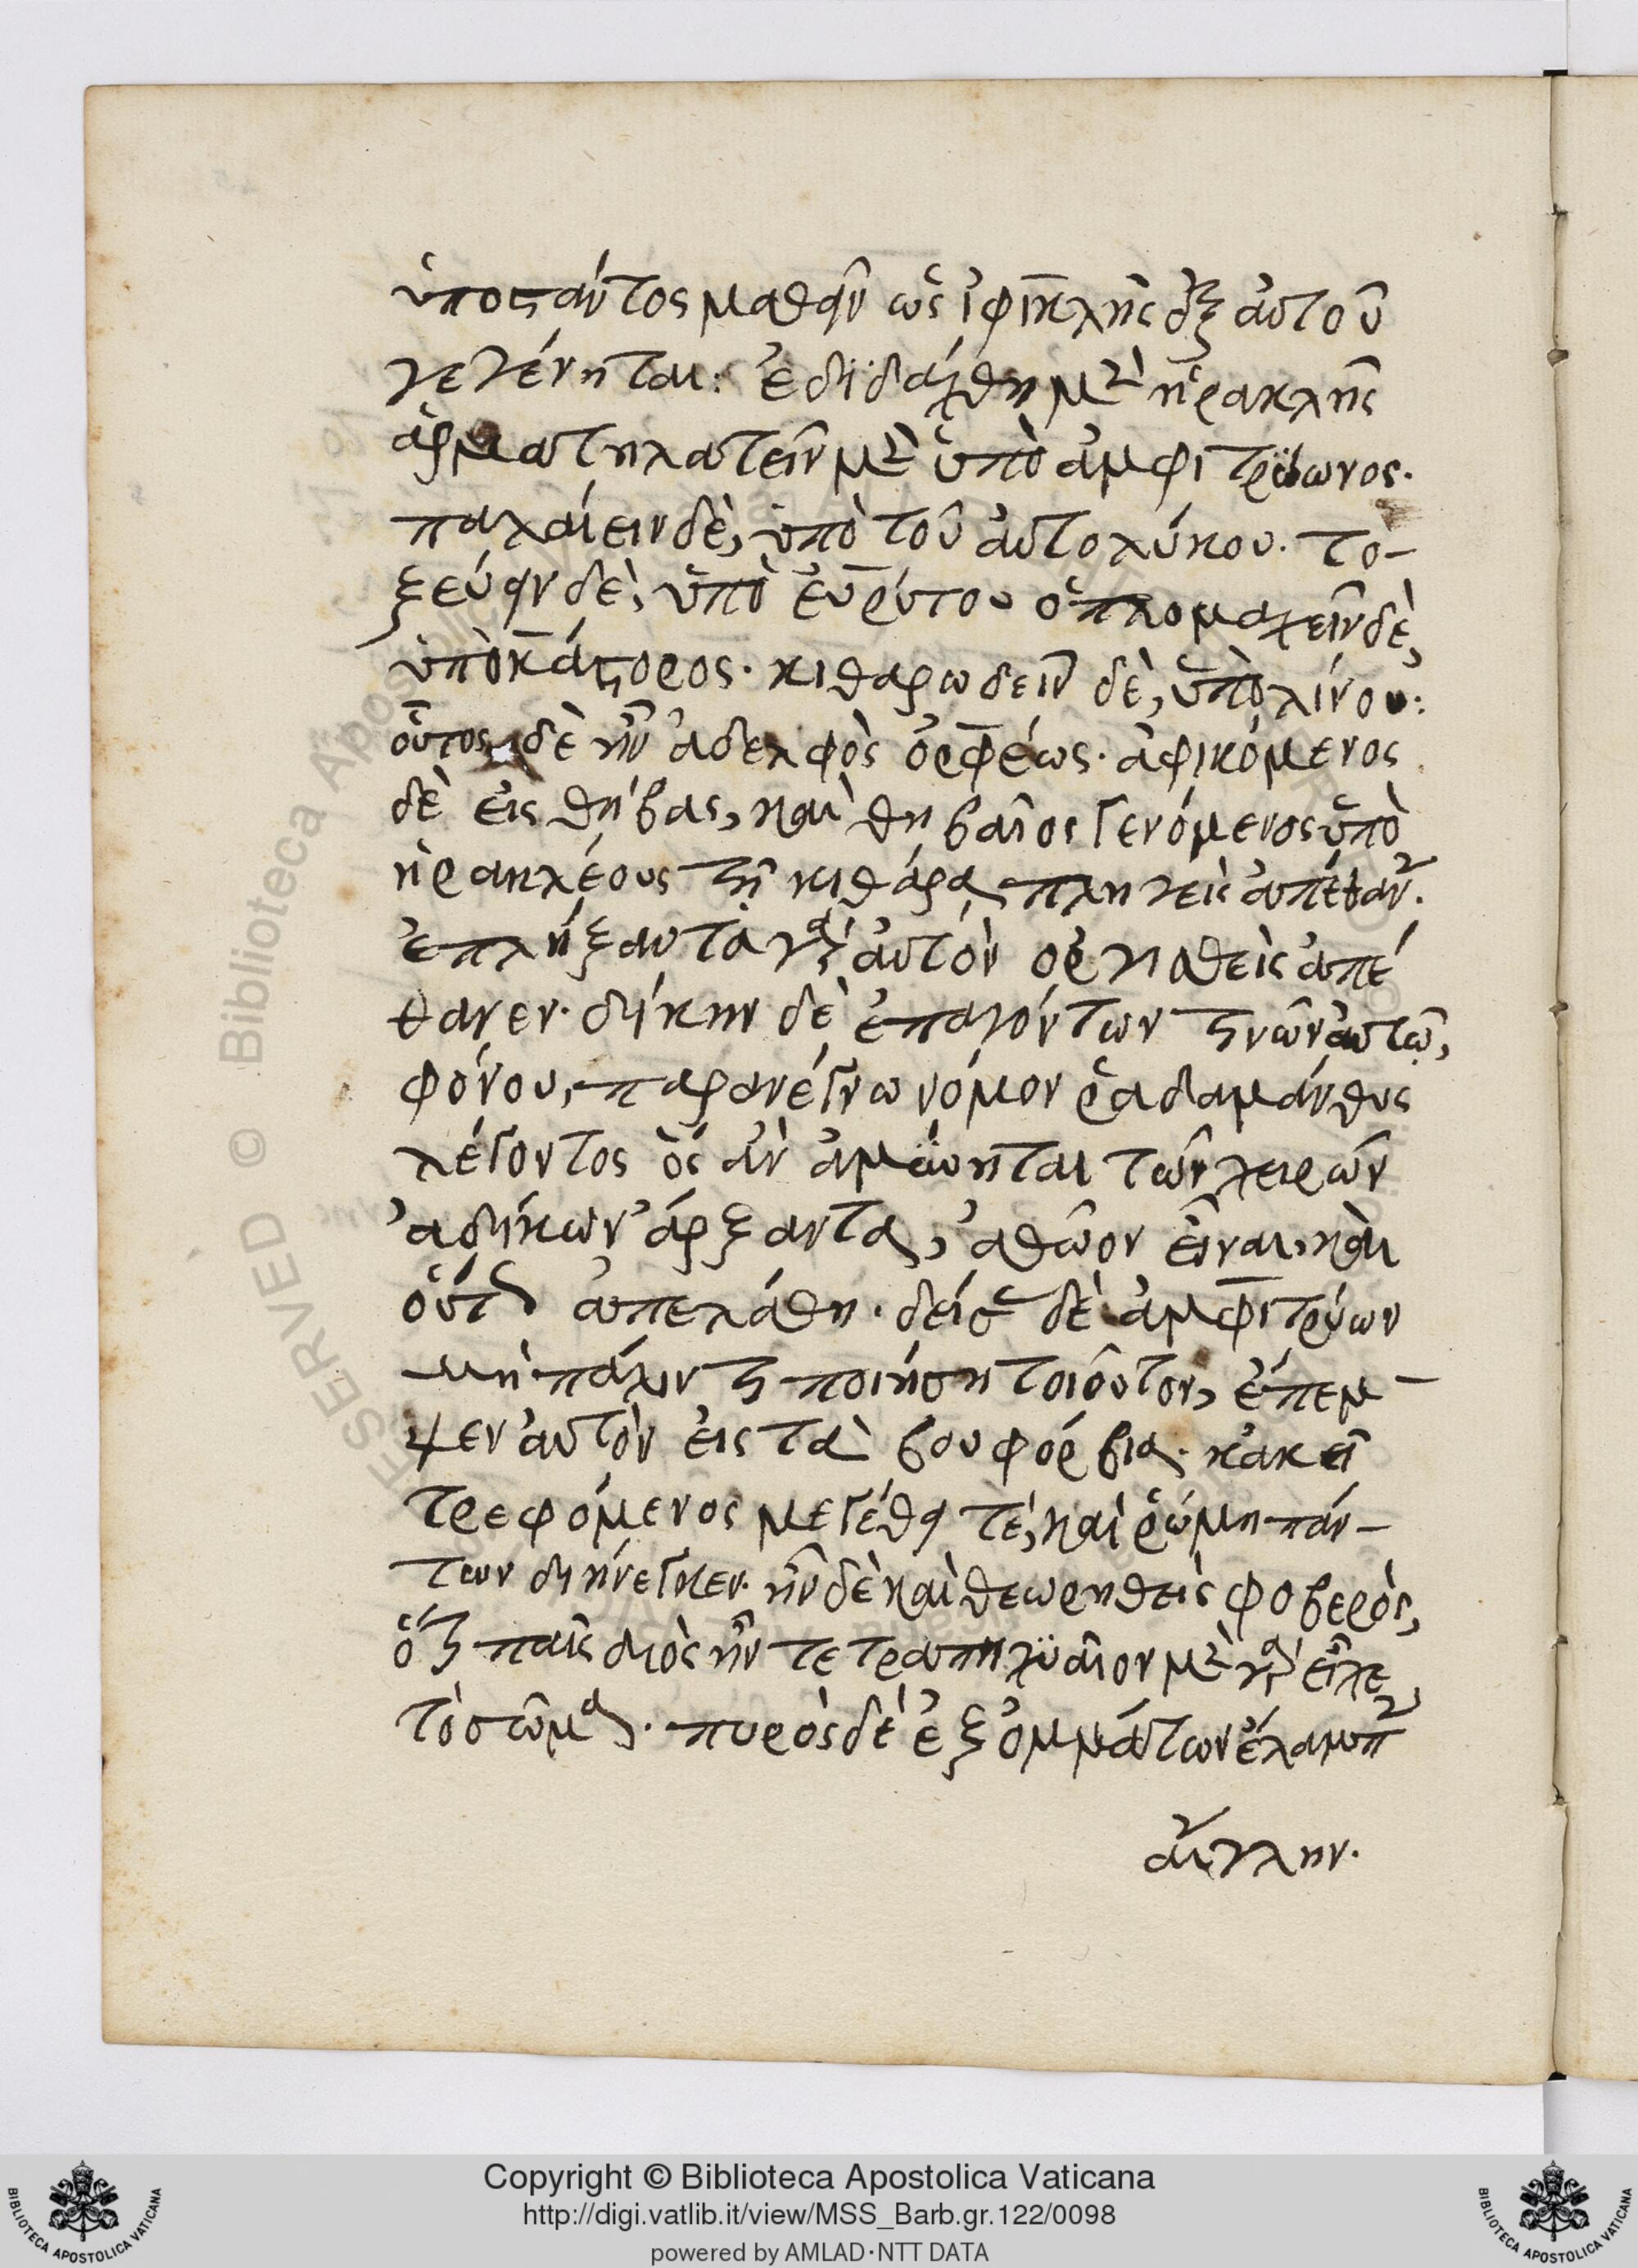 ὑποστάντος μαθεῖν ὡς ἰφικλῆς ἐξ αὐτοῦ
γεγένηται: ἐδιδάχθη μὲν ἡρακλῆς
ἁρματηλατεῖν μὲν ὑπὸ ἀμφιτρύωνος.
παλαίειν δὲ, ὑπὸ τοῦ αὐτολύκου. το-
ξεύειν δὲ, ὑπὸ ἐυρύτου ὁπλομαχεῖν δὲ,
ὑπὸ κάστορος. κιθαρωδεῖν δὲ, ὑπὸ λίνου:
οὗτος δὲ ἦν ἀδελφὸς ὀρφέως. ἀφικόμενος
δὲ εἰς θήβας, καὶ θηβαῖος γενόμενος ὑπὸ
ἡρακλέους τῆ κιθάρα πληγεὶς ἀπέθαν.
ἐπλήξαντα γὰρ αὐτὸν ὀργισθεὶς ἀπέ
θανεν. δίκην δὲ ἐπαγόντων τινῶν αὐτῶ,
φόνου, παρανέγνω νόμον ῥαδαμάνθυς
λέγοντος ὃς ἀν ἀμύνηται τῶν χειρῶν
ἀδίκων ἄρξαντα, ἀθῶον εἶναι, καὶ
οὕτως ἀπελάθη. δείσας δὲ ἀμφιτρύων
μὴ πάλιν τι ποιήση τοιοῦτον, ἔπεμ-
ψεν αὐτὸν εἰς τὰ βουφόρβια. κἀκεῖ
τρεφόμενος μεγέθει τὲ, καὶ ῥώμη πάν-
των διήνεγκεν. ἦν δὲ καὶ θεωρηθεὶς φοβερὸς,
ὅτι παῖς διὸς ἦν τετραπηχυαῖον μὲν γὰρ εἶχε
τὸ σῶμα. πυρὸς δὲ ἐξ ὀμμάτων ἔλαμπεν
αἴγλην.
Copyright © Biblioteca Apostolica Vaticana
http://digi.vatlib.it/view/MSS_Barb.gr.122/0098
powered by AMLAD·NTT DATA
BIBLIOTECA APOSTOLICA VATICANA
BIBLIOTECA APOSTOLICA VATICANA